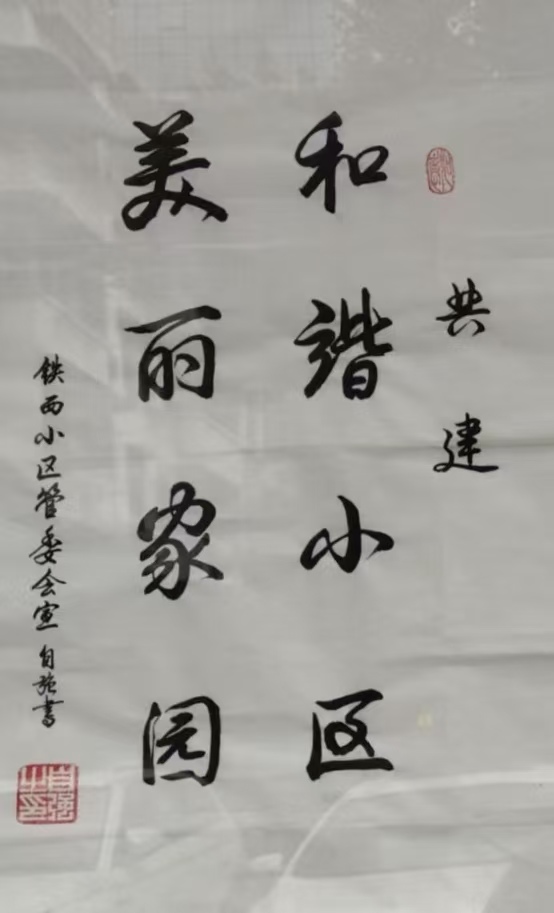 共建
和谐小区
美丽家园
铁西小区管委会宣 自强书
自强之印